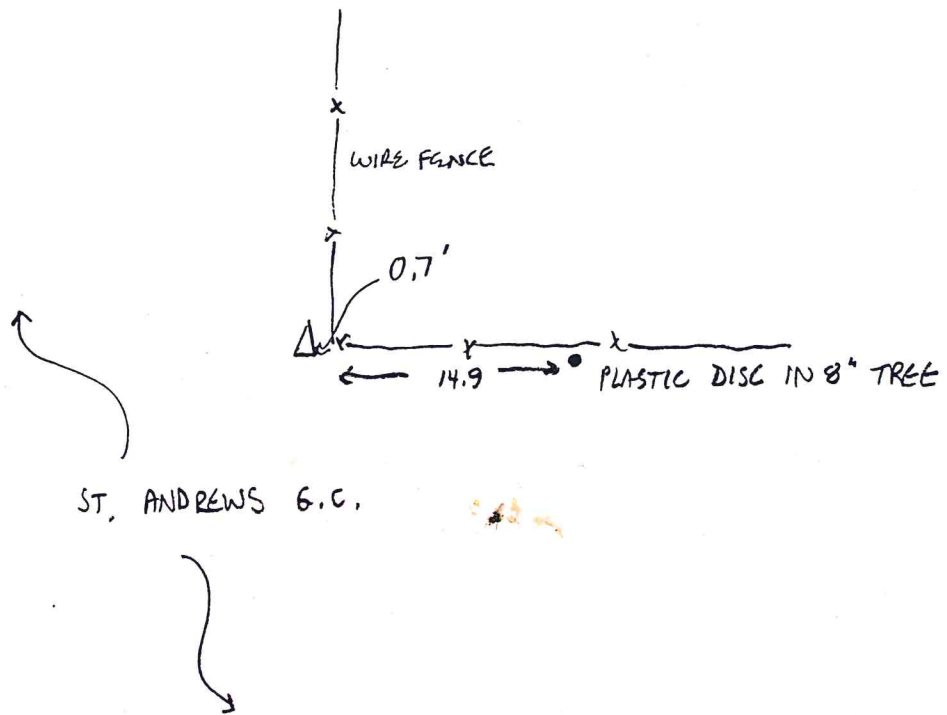 WIRE FENCE
0.7'
14.9
PLASTIC DISC IN 8" TREE
ST. ANDREWS G.C.